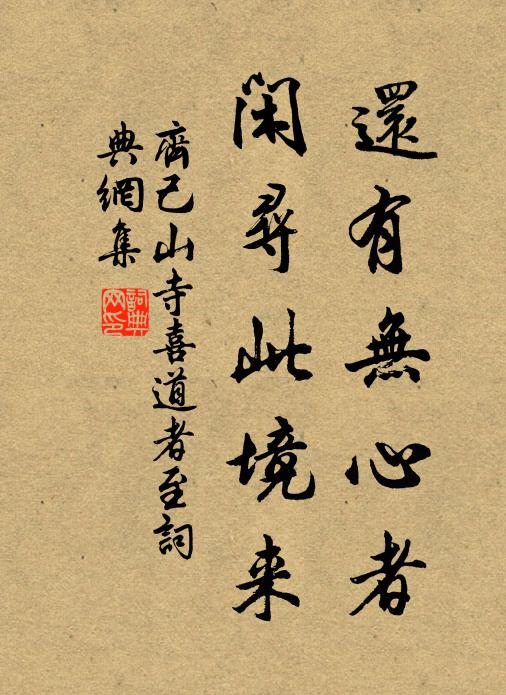 還有無心者
閑尋此境来
齊己山寺喜道者至詞
典網集
詞典網印